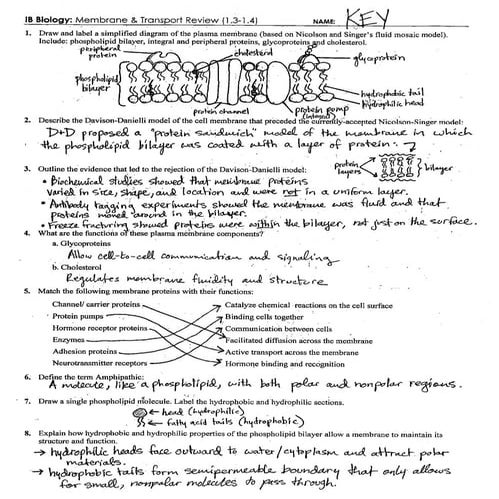 IB Biology: Membrane & Transport Review (1.3-1.4) NAME: KEY
1. Draw and label a simplified diagram of the plasma membrane (based on Nicolson and Singer's fluid mosaic model).
Include: phospholipid bilayer, integral and peripheral proteins, glycoproteins and cholesterol.
peripheral
protein
cholesterol
glycoprotein
phospholipid
bilayer
hydrophobic tail
hydrophilic head
protein channel
protein pump
(integral)
2. Describe the Davison-Danielli model of the cell membrane that preceded the currently-accepted Nicolson-Singer model:
D+D proposed a "protein sandwich" model of the membrane in which
the phospholipid bilayer was coated with a layer of protein.
protein
layers
bilayer
3. Outline the evidence that led to the rejection of the Davison-Danielli model:
• Biochemical studies showed that membrane proteins
varied in size, shape, and location and were not in a uniform layer.
• Antibody tagging experiments showed the membrane was fluid and that
proteins moved around in the bilayer.
• Freeze fracturing showed proteins were within the bilayer, not just on the surface.
4. What are the functions of these plasma membrane components?
a. Glycoproteins
Allow cell-to-cell communication and signaling
b. Cholesterol
Regulates membrane fluidity and structure
5. Match the following membrane proteins with their functions:
Channel/ carrier proteins Catalyze chemical reactions on the cell surface
Protein pumps Binding cells together
Hormone receptor proteins Communication between cells
Enzymes Facilitated diffusion across the membrane
Adhesion proteins Active transport across the membrane
Neurotransmitter receptors Hormone binding and recognition
6. Define the term Amphipathic:
A molecule, like a phospholipid, with both polar and nonpolar regions.
7. Draw a single phospholipid molecule. Label the hydrophobic and hydrophilic sections.
← head (hydrophilic)
← fatty acid tails (hydrophobic)
8. Explain how hydrophobic and hydrophilic properties of the phospholipid bilayer allow a membrane to maintain its
structure and function.
→ hydrophilic heads face outward to water/cytoplasm and attract polar
materials.
→ hydrophobic tails form semipermeable boundary that only allows
for small, nonpolar molecules to pass through.